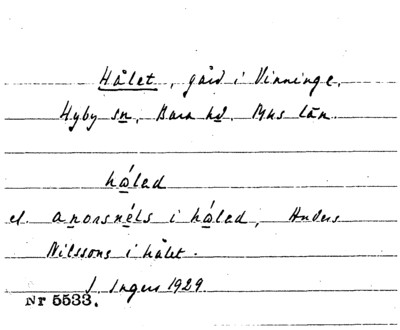 Hålet, gård i Vinninge,
Hyby sn, Bara hd. Mhs län.
hálad
el. anorsnéls i hálad, Anders
Nilssons i hålet.
J. Ingers 1929
Nr 5533.